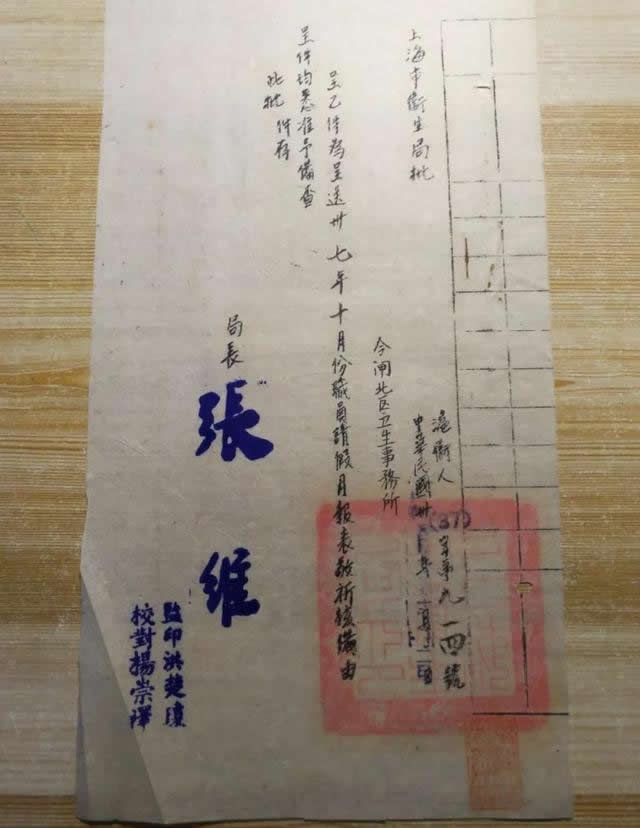 上海市衛生局批
滬衛人(37)字第九一四號
中華民國卅
令閘北区卫生事務所
呈乙件為呈送卅七年十月份職員請假月報表敬祈核備由
呈件均悉准予備查
此批 件存
局長
張維
監印洪楚瓊
校對楊崇澤